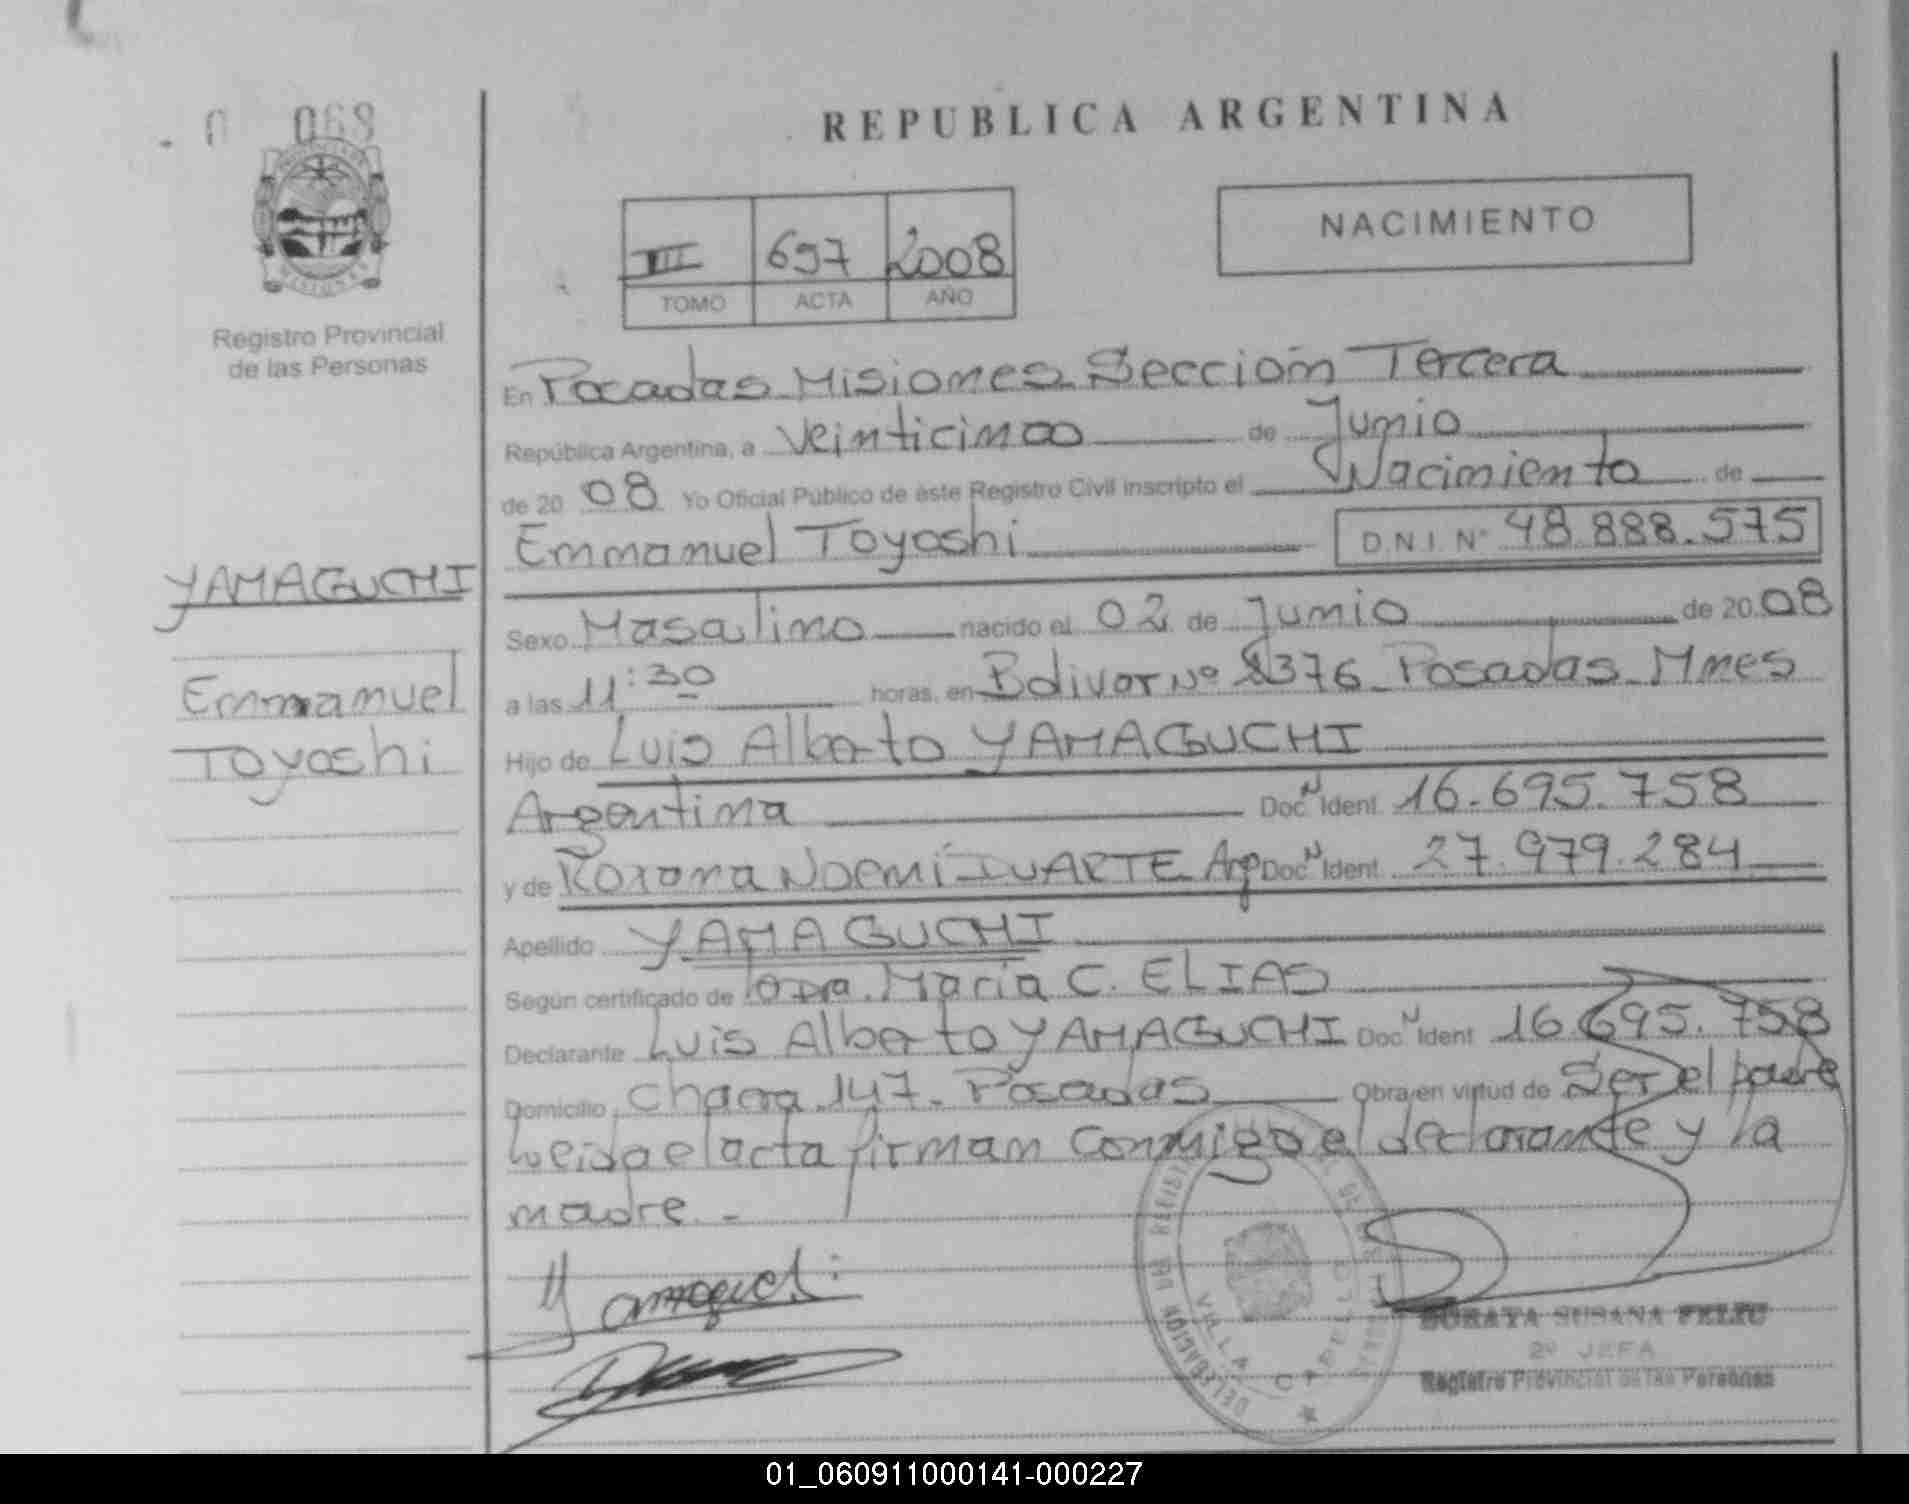 069
REPUBLICA ARGENTINA
NACIMIENTO
III 697 2008
TOMO ACTA AÑO
Registro Provincial
de las Personas
En Posadas Misiones Sección Tercera
República Argentina, a Veinticinco de Junio
de 20 08 Yo Oficial Público de éste Registro Civil inscripto el Nacimiento de
Emmanuel Toyoshi D.N.I. Nº 48.888.575
YAMAGUCHI
Emmanuel
Toyoshi
Sexo Masculino nacido el 02 de Junio de 20 08
a las 11:30 horas, en Bolivar Nº 2376 Posadas Mnes
Hijo de Luis Alberto YAMAGUCHI
Argentina Doc N Ident 16.695.758
y de Roxana Noemi DUARTE Arg Doc N Ident 27.979.284
Apellido YAMAGUCHI
Según certificado de la Dra. Maria C. ELIAS
Declarante Luis Alberto YAMAGUCHI Doc N Ident 16.695.758
Domicilio Chacra 147 - Posadas Obra en virtud de Ser el padre
Leida el acta firman conmigo el declarante y la
madre. -
DELEGACIÓN DEL REGISTRO
VILLA CABELLO
SORAYA SUSANA FELIU
2º JEFA
Registro Provincial de las Personas
01_060911000141-000227